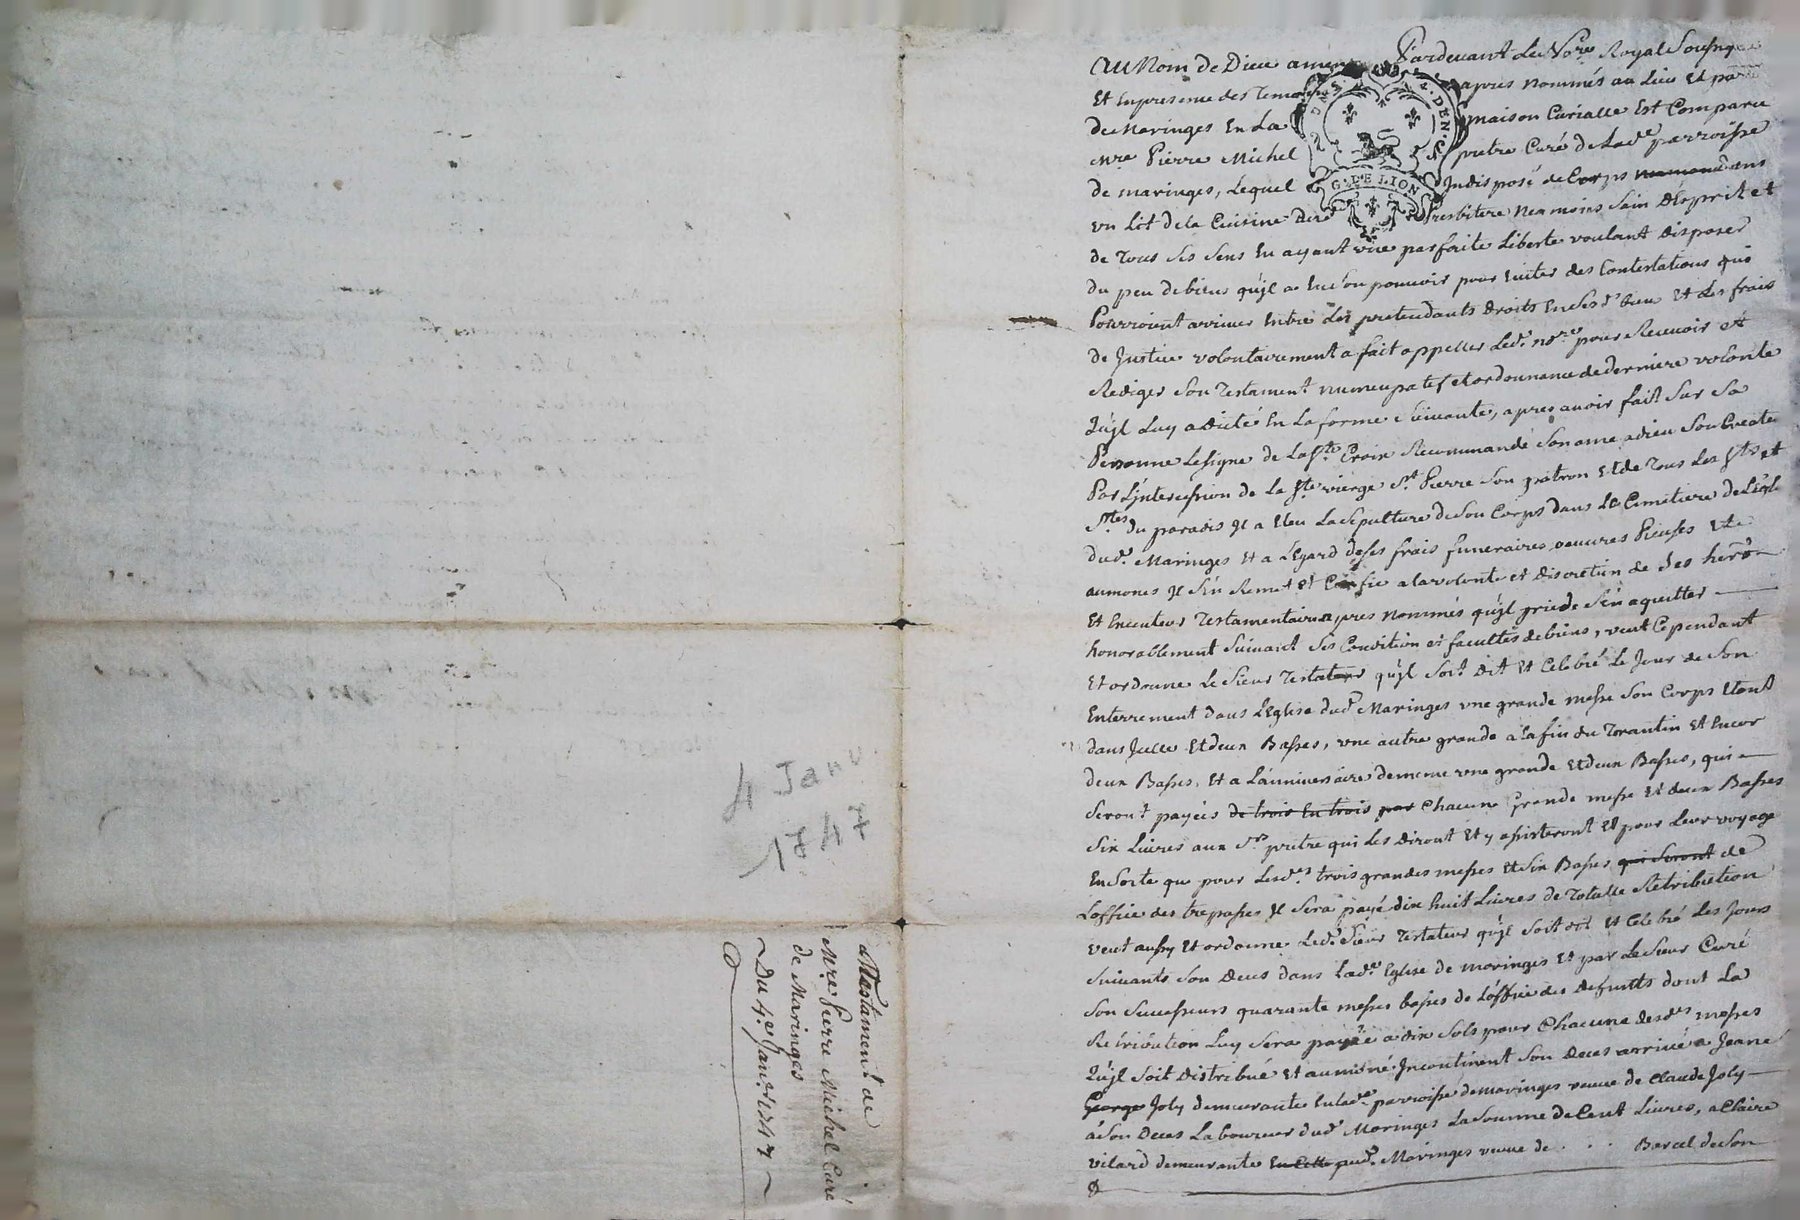 4 Janv
1747
Testament de
Mre Pierre Michel Curé
de Maringes
Du 4e Janr 1747
AU Nom de Dieu amen Pardevant Le No.re Royal Soussig
Et En presence des Temoins apres nommés au Lieu Et
de Maringes En La maison Curialle Est Comparu
Mre Pierre Michel pretre Curé de Lad.e parroisse
de maringes, Lequel Indisposé de Corps dans
un Lit de la Cuisine Presbitere Neamoins Sain d'Esprit et
de Tous Ses Sens En ayant une parfaite Liberte voulant disposer
du peu de biens qu'jl a En Son pouvoir pour Eviter des Contestations qui
Pourroient arriver Entre Les pretendants droits En Ses d. biens Et des frais
de Justice volontairement a fait appeller Led.t no.re pour Recevoir et
Rediger Son Testament nuncupatif et ordonnance de derniere volonte
Qu'jl Luy a Dicté En La forme Suivante, apres avoir fait Sur Sa
Personne Le signe de La Ste Croix Recommandé Son ame a dieu Son Create
Par L'jntercession de La Ste vierge St Pierre Son patron Et de Tous Les Sts et
Stes du paradis Jl a Eleu La Sepulture de Son Corps dans Le Cimetiere de L'egl
dud.t Maringes Et a L'Egard de Ses frais funeraires oeuvres Pieuses Et
aumones Jl S'en Remet Et Confie a la volonte et discretion de Ses
Et Executeur Testamentaire apres nommés qu'jl prie de S'en aquitter
honorablement Suivant Ses Condition et facultés de biens, veut Cependant
Et ordonne Le Sieur Testateur qu'jl Soit Dit Et Celebré Le Jour de Son
Enterrement dans L'Eglise dud.t Maringes une grande messe Son Corps Etant
dans Jcelle Et deux Basses, une autre grande a la fin du Trantin Et Encor
deux Basses, Et a L'anniversaire de meme une grande Et deux Basses, qui
Seront payées de trois En trois par Chacune Grande messe Et deux Basses
Six Livres aux Srs pretre qui Les diront Et y assisteront Et pour Leur voyage
En Sorte que pour Lesd.es trois grandes messes Et Six Basses qui Seront de
L'office des trepasses Jl Sera payé dix huit Livres de Totalle Retribution
veut aussy Et ordonne Led.t Sieur Testateur qu'jl Soit dit Et Celebré Les Jours
Suivants Son Deces dans Lad.e Eglise de maringes Et par Le Sieur Curé
Son Successeurs quarante messes basses de L'office des deffunts dont La
Retribution Luy Sera payée a dix Sols pour Chacune desd.es messes
Qu'jl Soit Distribué Et aumoné Jncontinent Son Deces arrivé a Jeane
George Joly demeurante En Lad.e parroisse de maringes veuve de Claude Joly
a Son Deces Laboureur dud.t Maringes La Somme de Cent Livres, a Claire
vilard demeurante aud.t Maringes veuve de . . . Barcel de Son